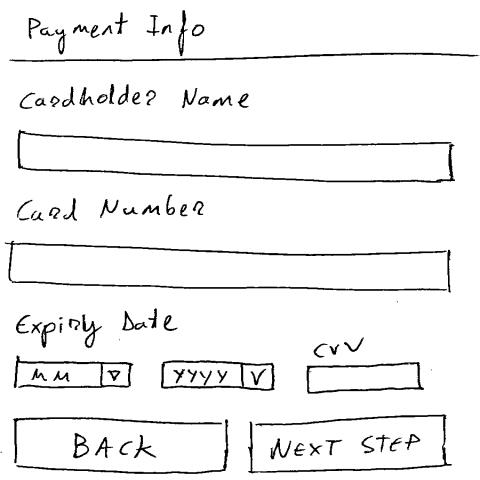 Payment Info
Cardholder Name
Card Number
Expiry Date
CVV
MM YYYY
BACK NEXT STEP